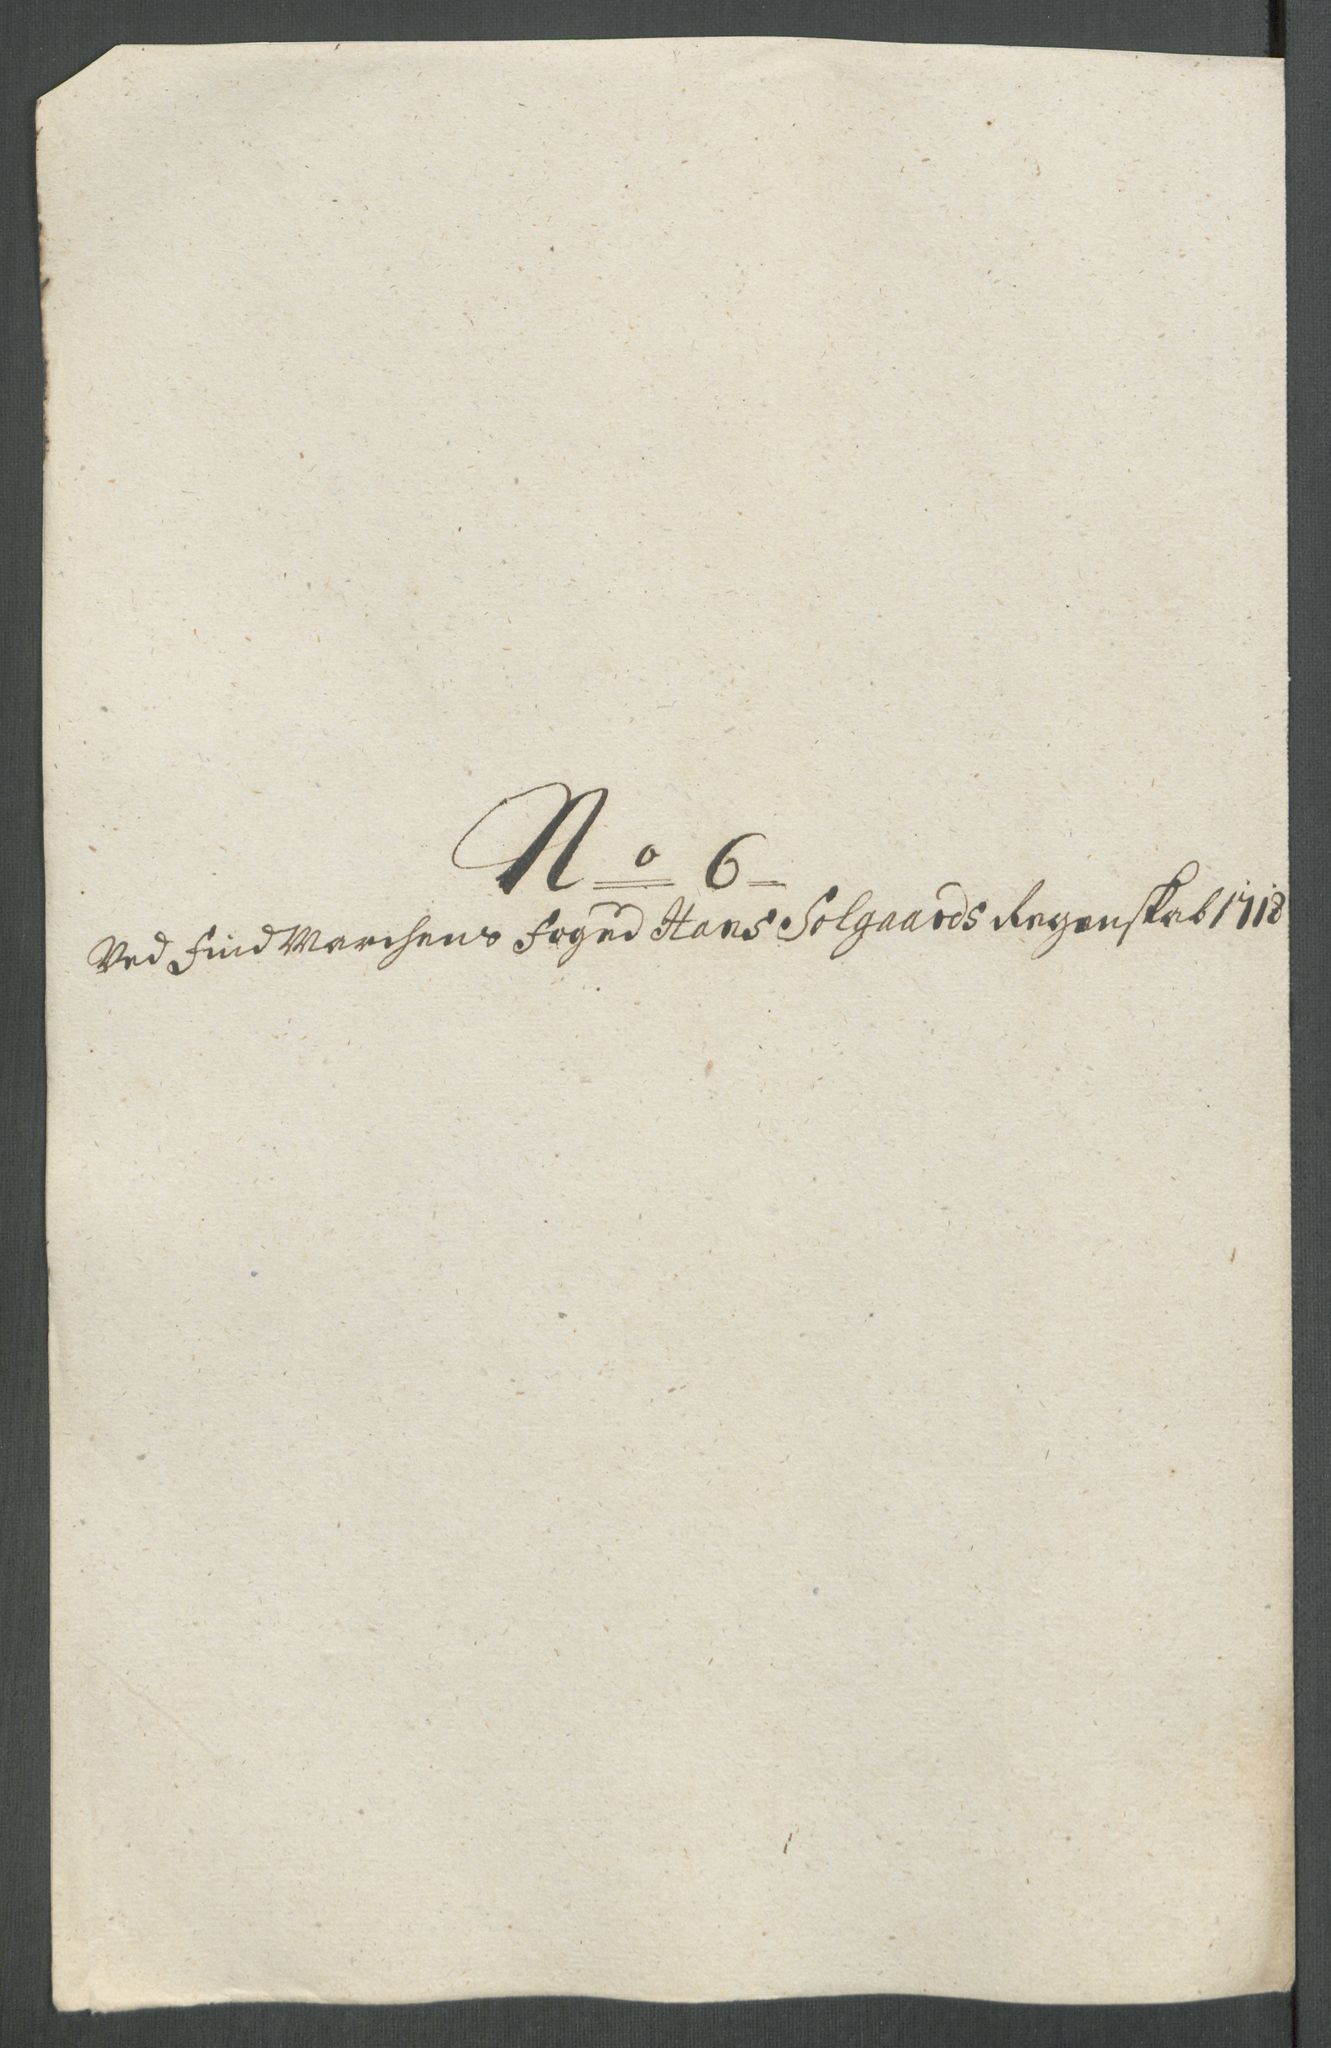 No 6
Ved FindMarchens Foged Hans Solgaards Regenskab 1718